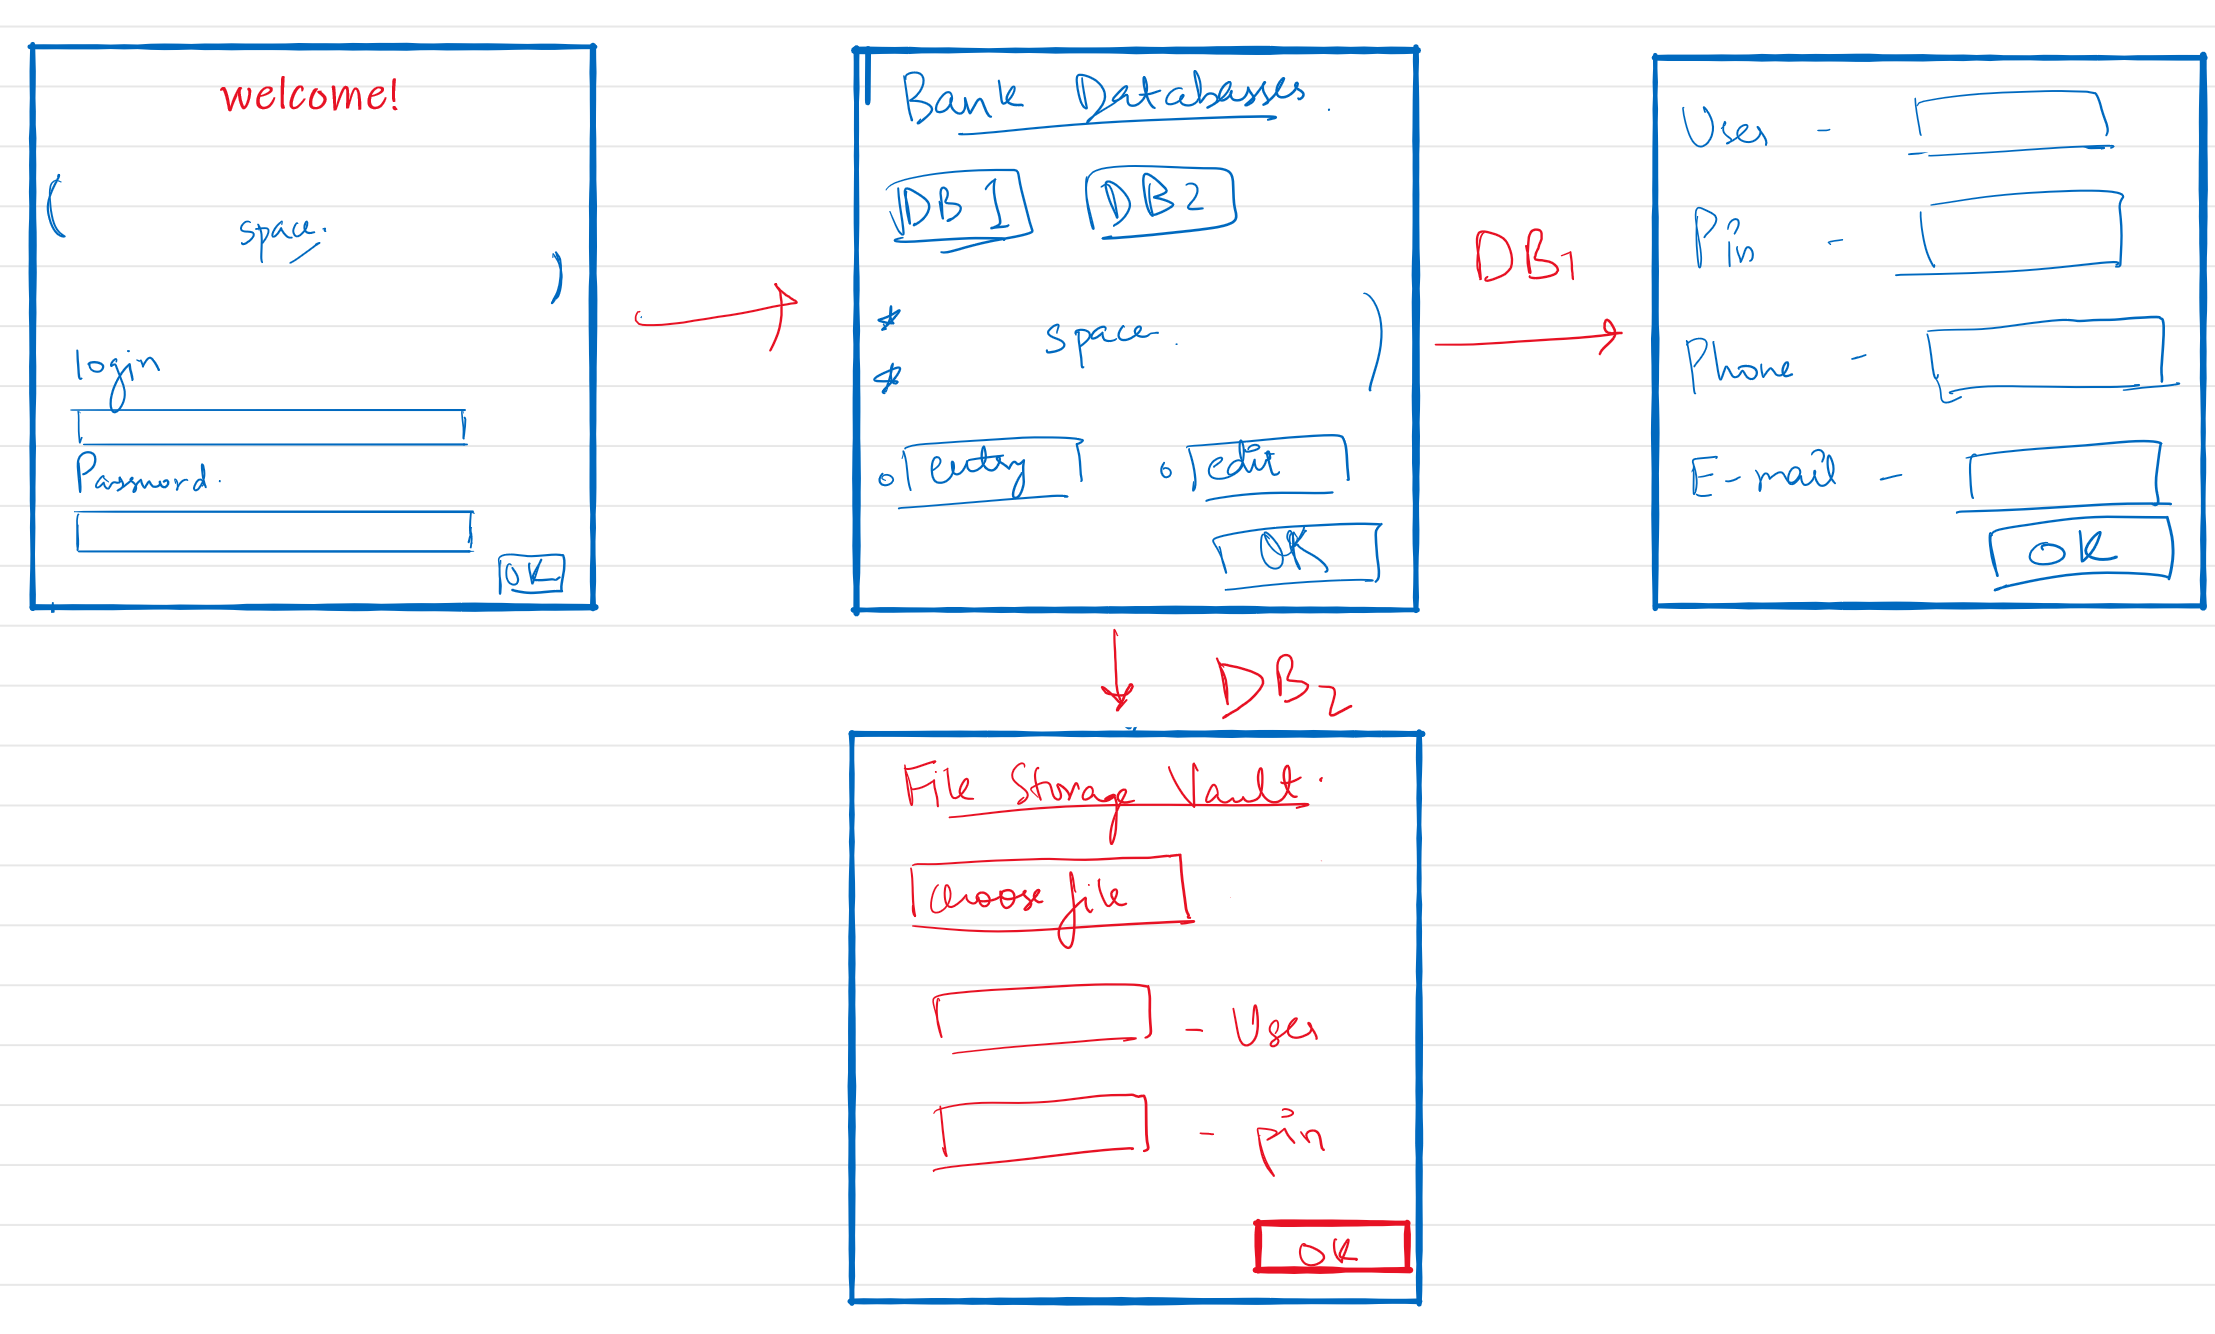 welcome!
space.
login
Password.
OK
Bank Databasses.
DB1 DB2
* space.
*
entry edit
OK
DB1
User -
Pin -
Phone -
E-mail -
OK
DB2
File Storage Vault.
choose file
- User
- pin
OK